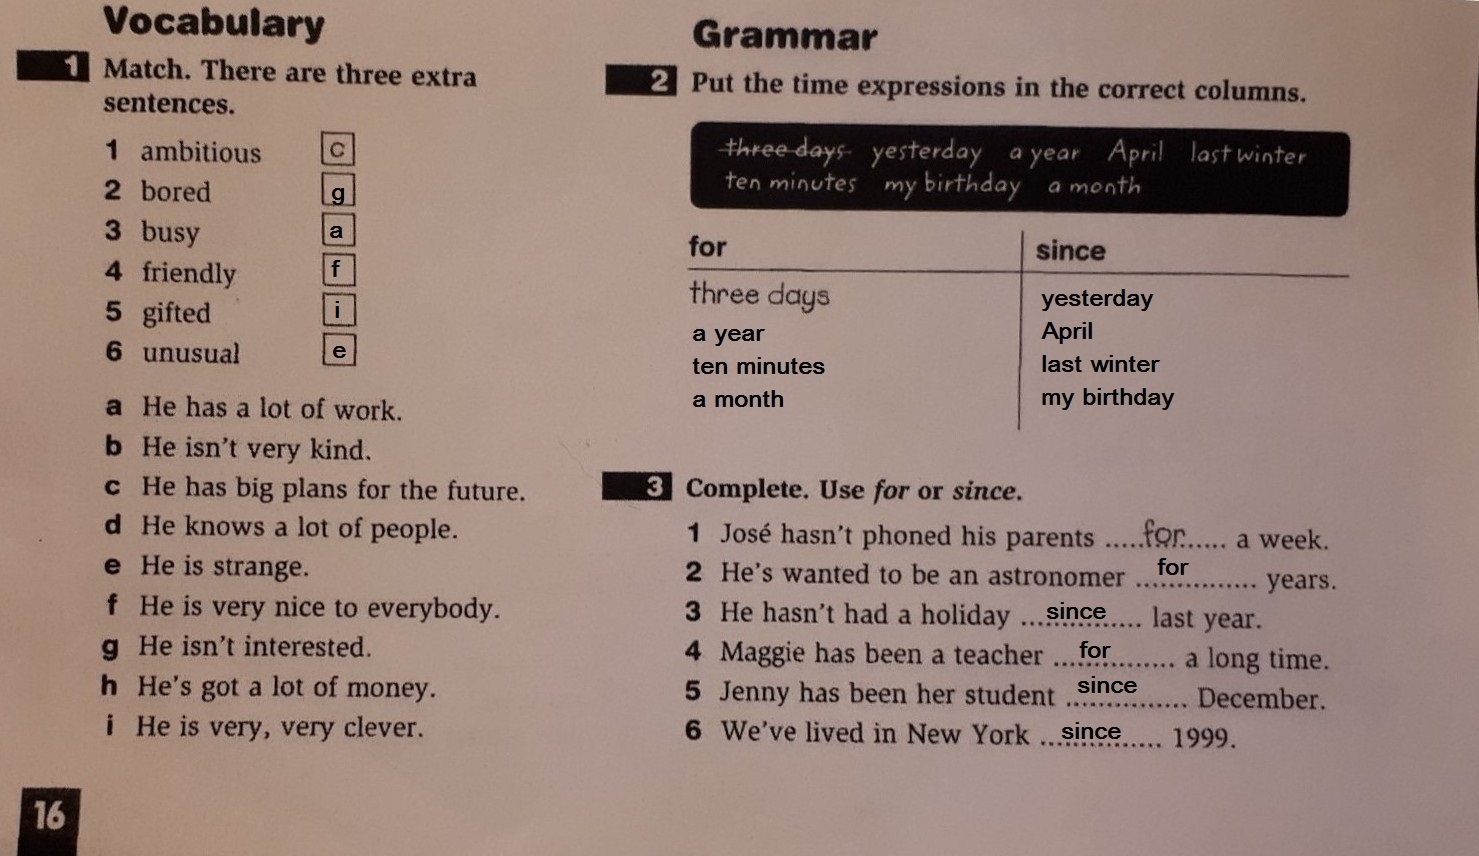 Vocabulary
1 Match. There are three extra
sentences.
1 ambitious c
2 bored g
3 busy a
4 friendly f
5 gifted i
6 unusual e
a He has a lot of work.
b He isn't very kind.
c He has big plans for the future.
d He knows a lot of people.
e He is strange.
f He is very nice to everybody.
g He isn't interested.
h He's got a lot of money.
i He is very, very clever.
16
Grammar
2 Put the time expressions in the correct columns.
three days yesterday a year April last winter
ten minutes my birthday a month
for since
three days yesterday
a year April
ten minutes last winter
a month my birthday
3 Complete. Use for or since.
1 José hasn't phoned his parents .....for...... a week.
2 He's wanted to be an astronomer ... for ... years.
3 He hasn't had a holiday ... since ... last year.
4 Maggie has been a teacher ... for ... a long time.
5 Jenny has been her student ... since ... December.
6 We've lived in New York ... since ... 1999.